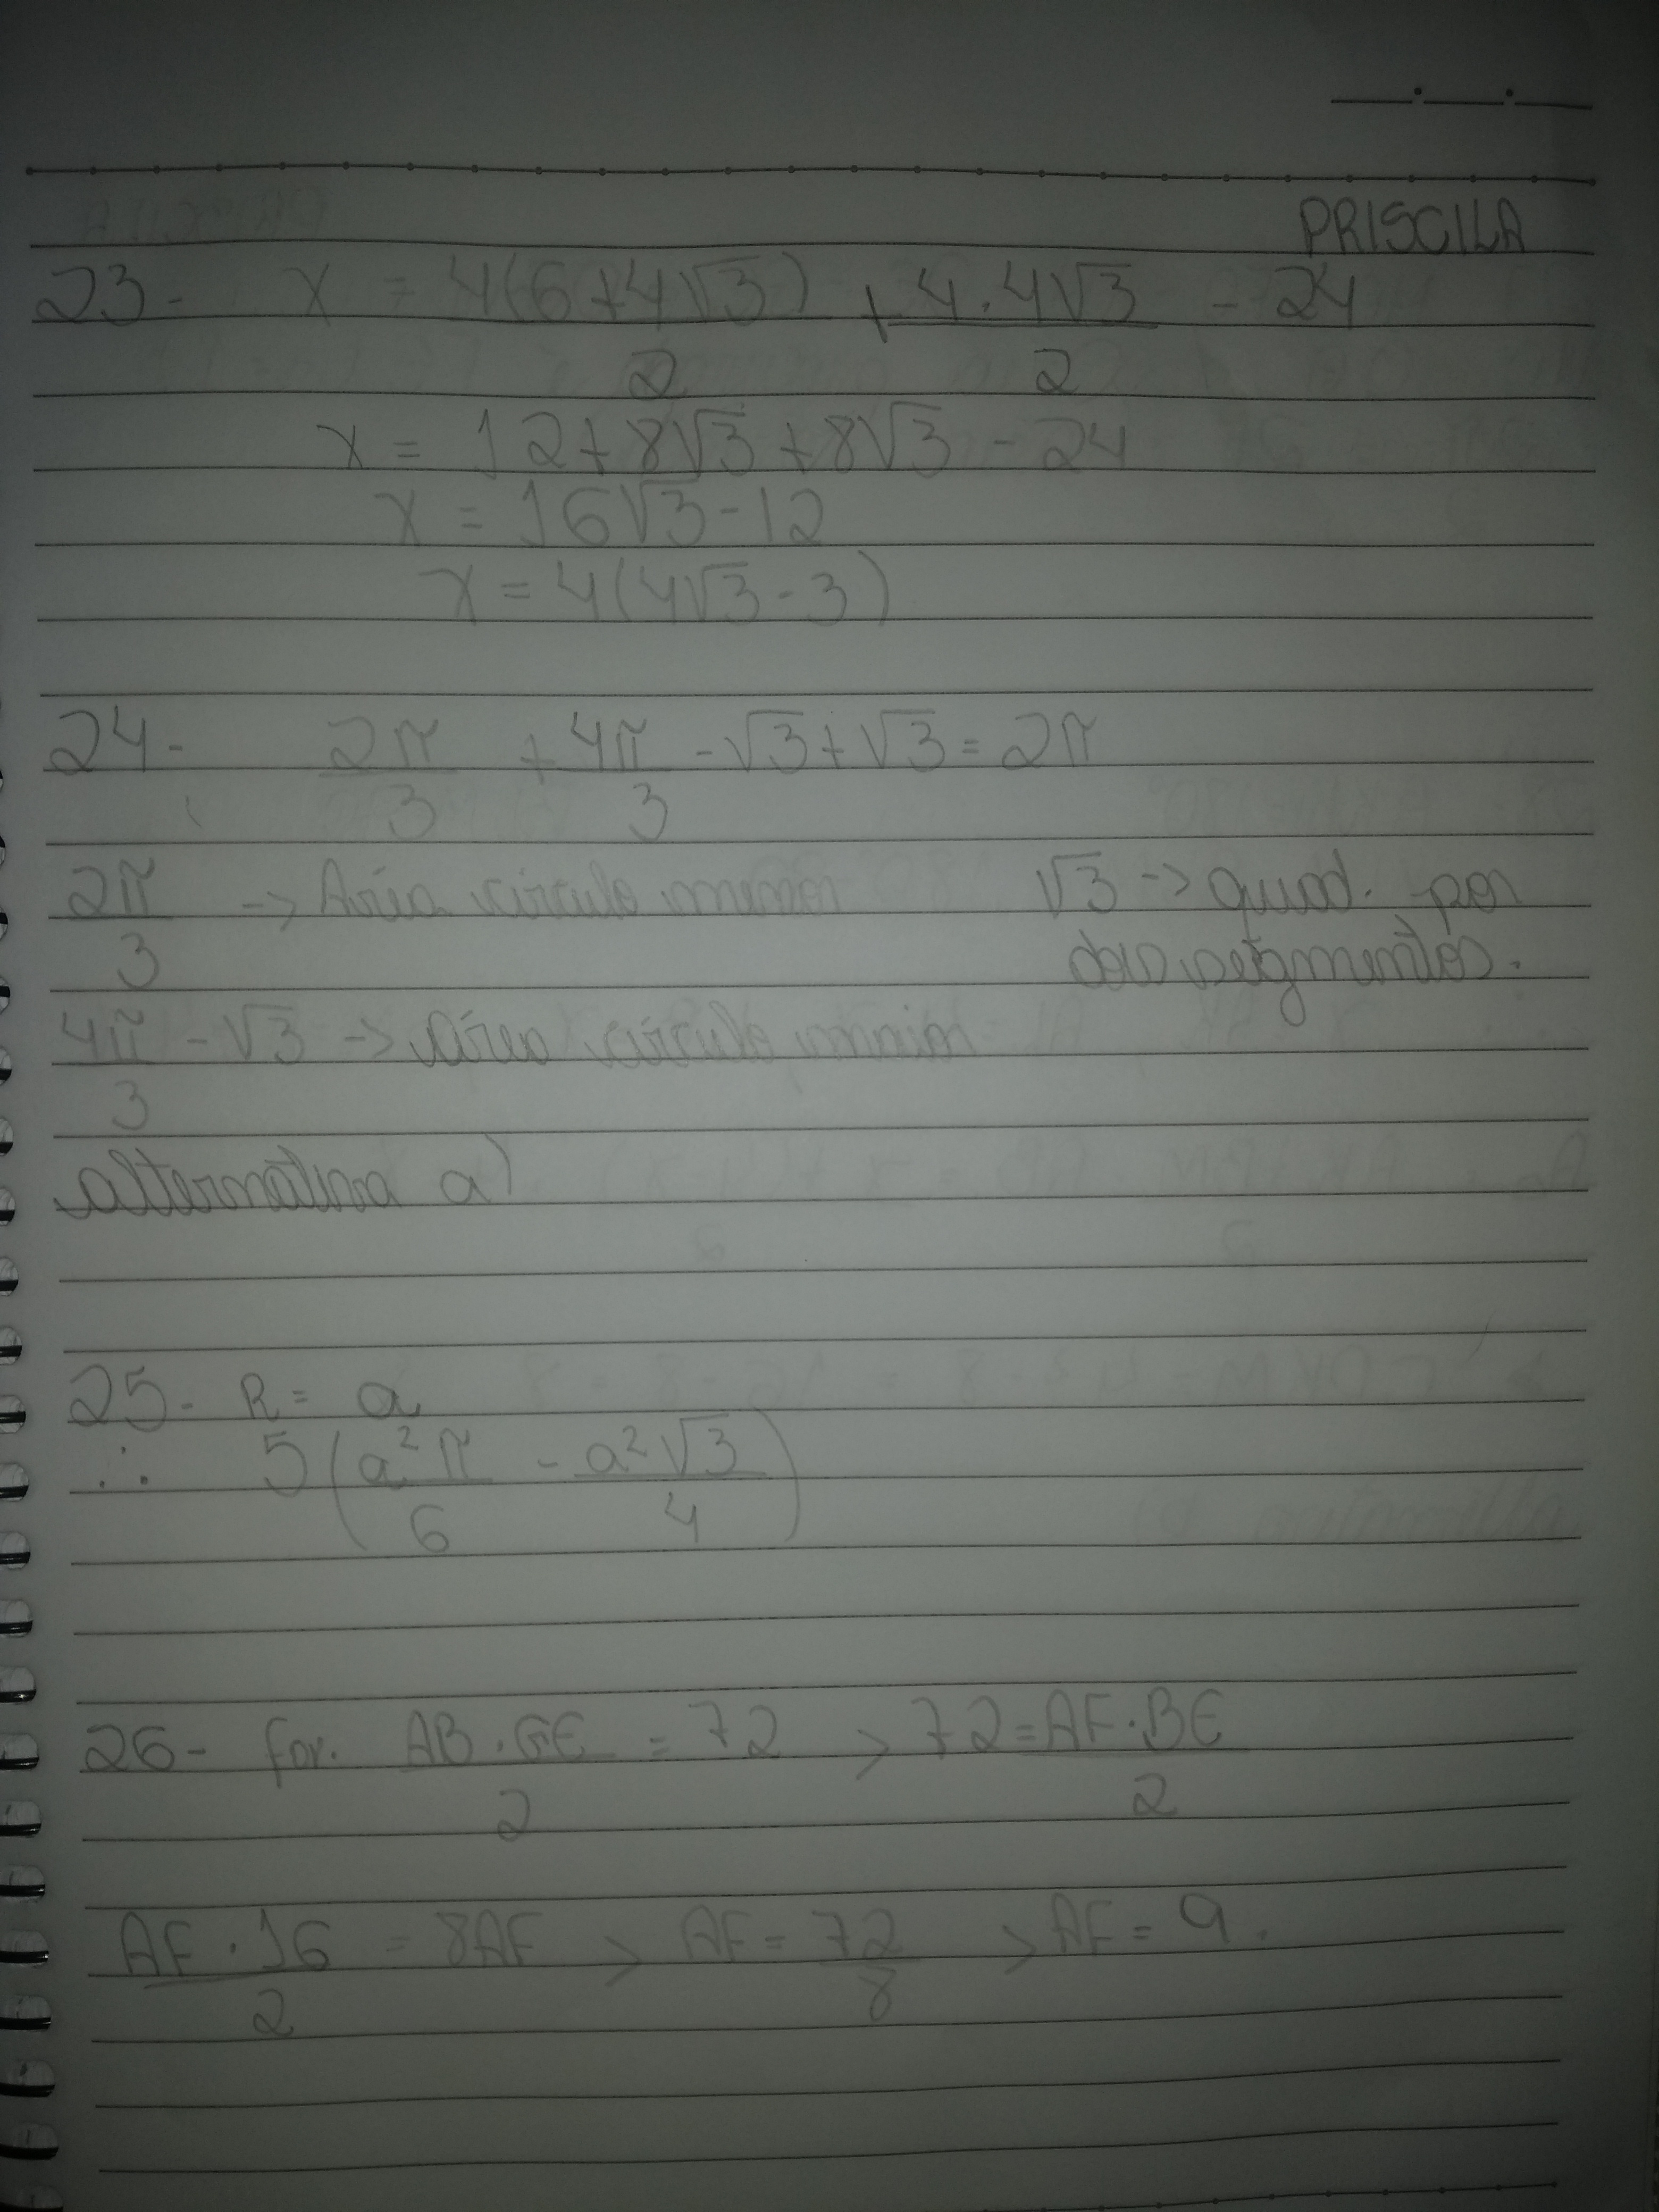 PRISCILA
23- x = 4(6+4√3)/2 + 4.4√3/2 - 24
x = 12+8√3+8√3-24
x = 16√3-12
x = 4(4√3-3)
24- 2π/3 + 4π/3 -√3+√3=2π
2π/3 -> Área círculo menor
√3 -> quad. por
dois segmentos.
4π/3 - √3 -> área círculo maior
alternativa a)
25- R= a
∴ 5(a²π/6 - a²√3/4)
26- for. AB.GE/2 = 72 > 72=AF.BE/2
AF.16/2 = 8AF > AF=72/8 > AF=9.